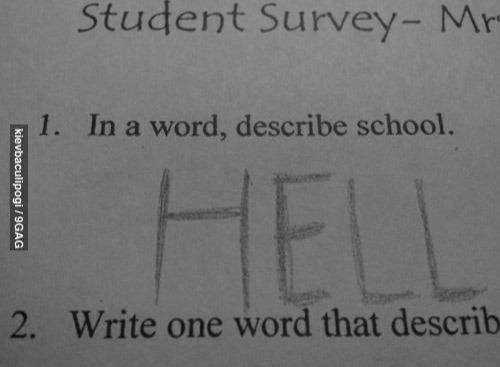 Student Survey- Mr
1. In a word, describe school.
HELL
2. Write one word that describ
kievbaculipogi / 9GAG